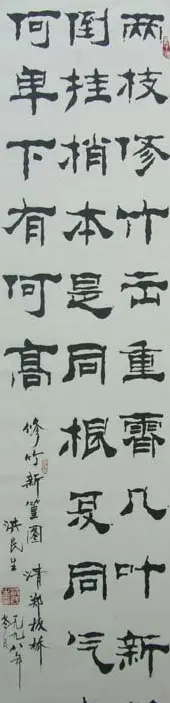 两枝修竹出重霄几叶新
倒挂梢本是同根复同气
何卑下有何高
修竹新篁图 清郑板桥
一九九八年
冬月
洪民生